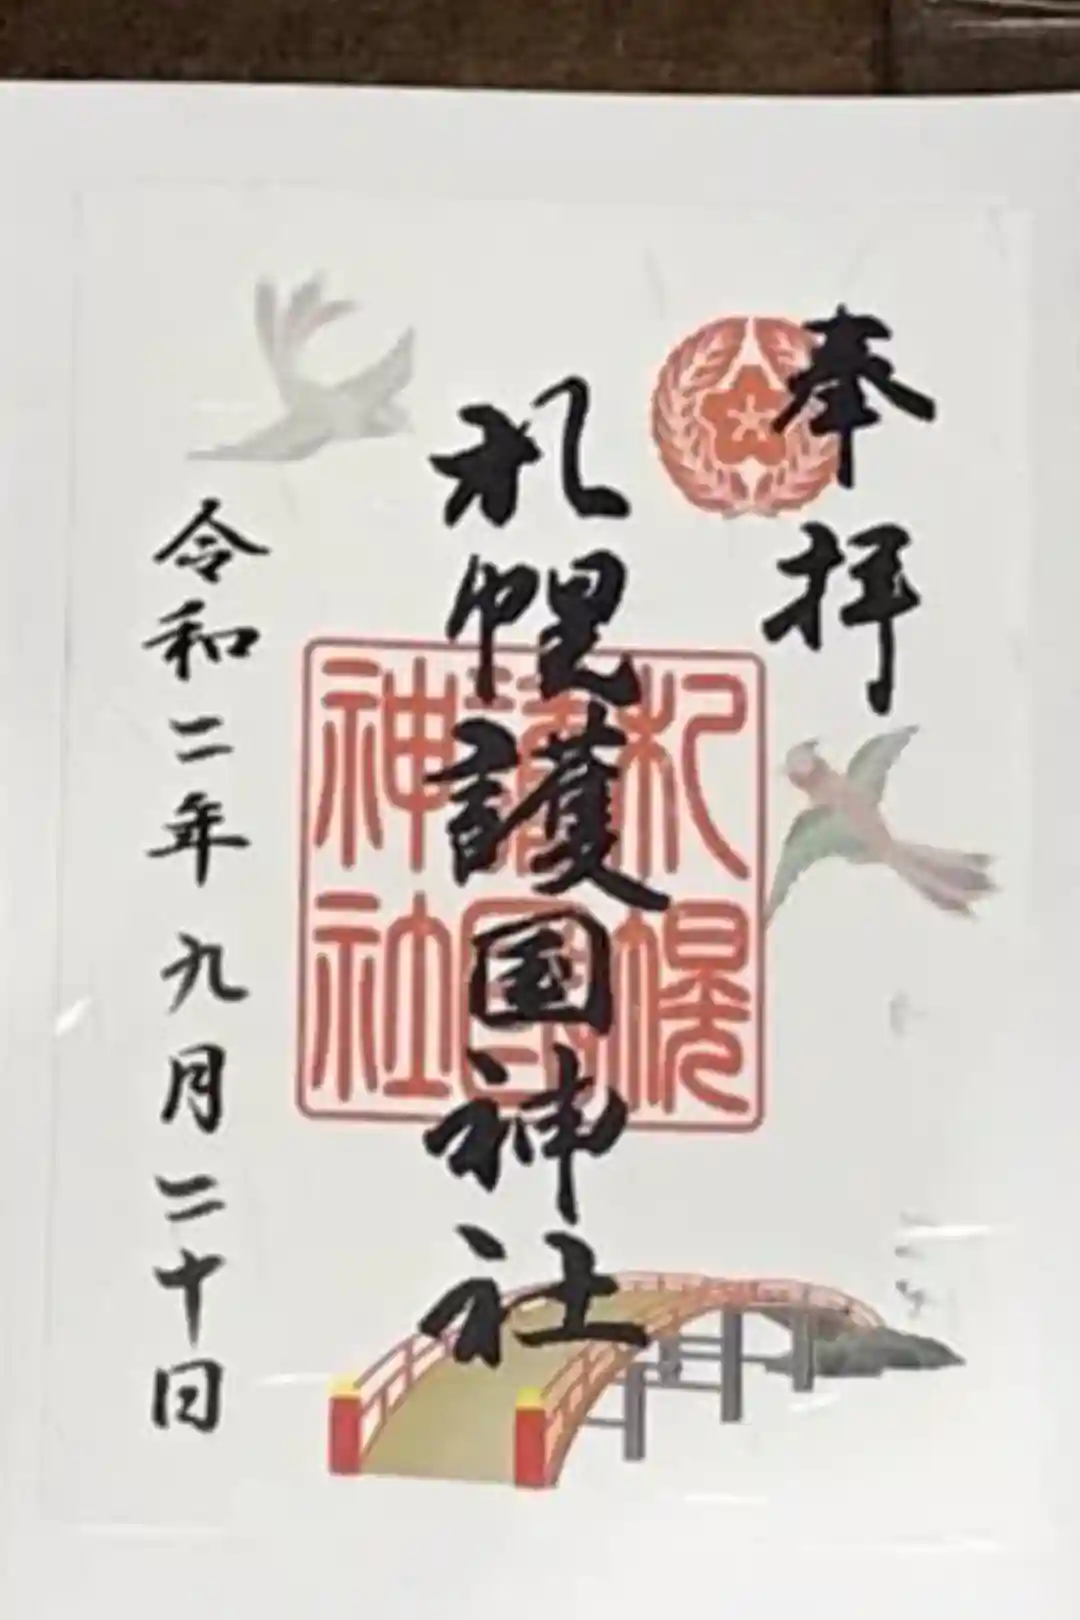 奉拝
札幌護国神社
札幌護國神社
令和二年九月二十日